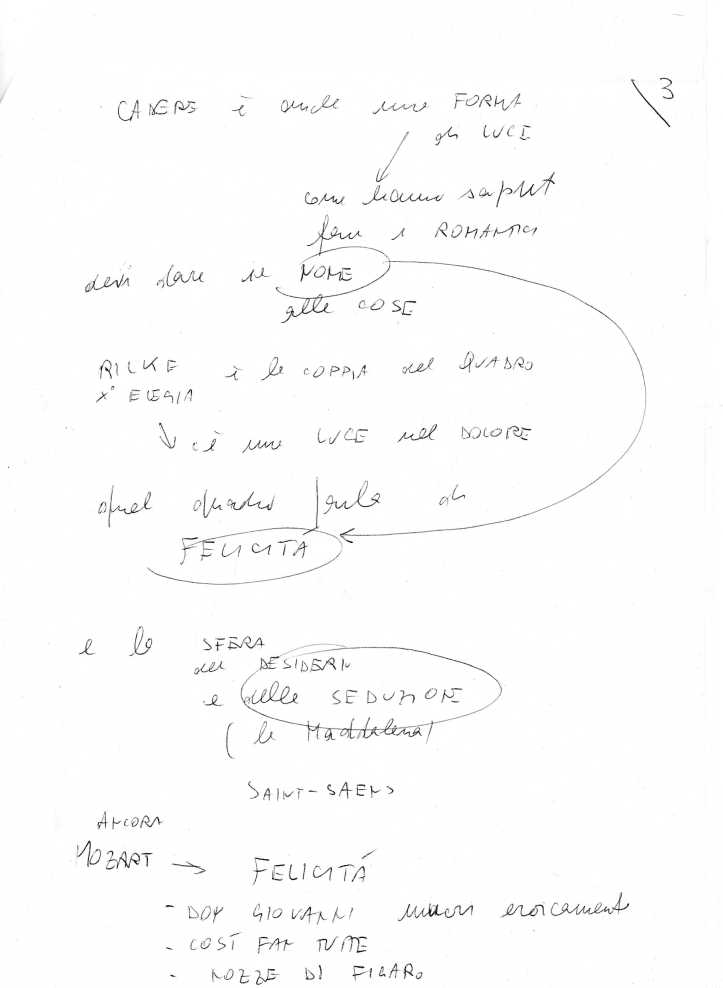 3
CADERE è anche una FORMA
di LUCE
come hanno saputo
fare i ROMANTICI
devi dare un NOME
alle COSE
RILKE è la COPPIA del QUADRO
X° ELEGIA
c'è una LUCE nel DOLORE
quel quadro parla di
FELICITÀ
e la SFERA
dei DESIDERI
e della SEDUZIONE
(la Maddalena)
SAINT-SAENS
ANCORA
MOZART → FELICITÁ
- DON GIOVANNI eroicamente
- COSÍ FAN TUTTE
- NOZZE DI FIGARO